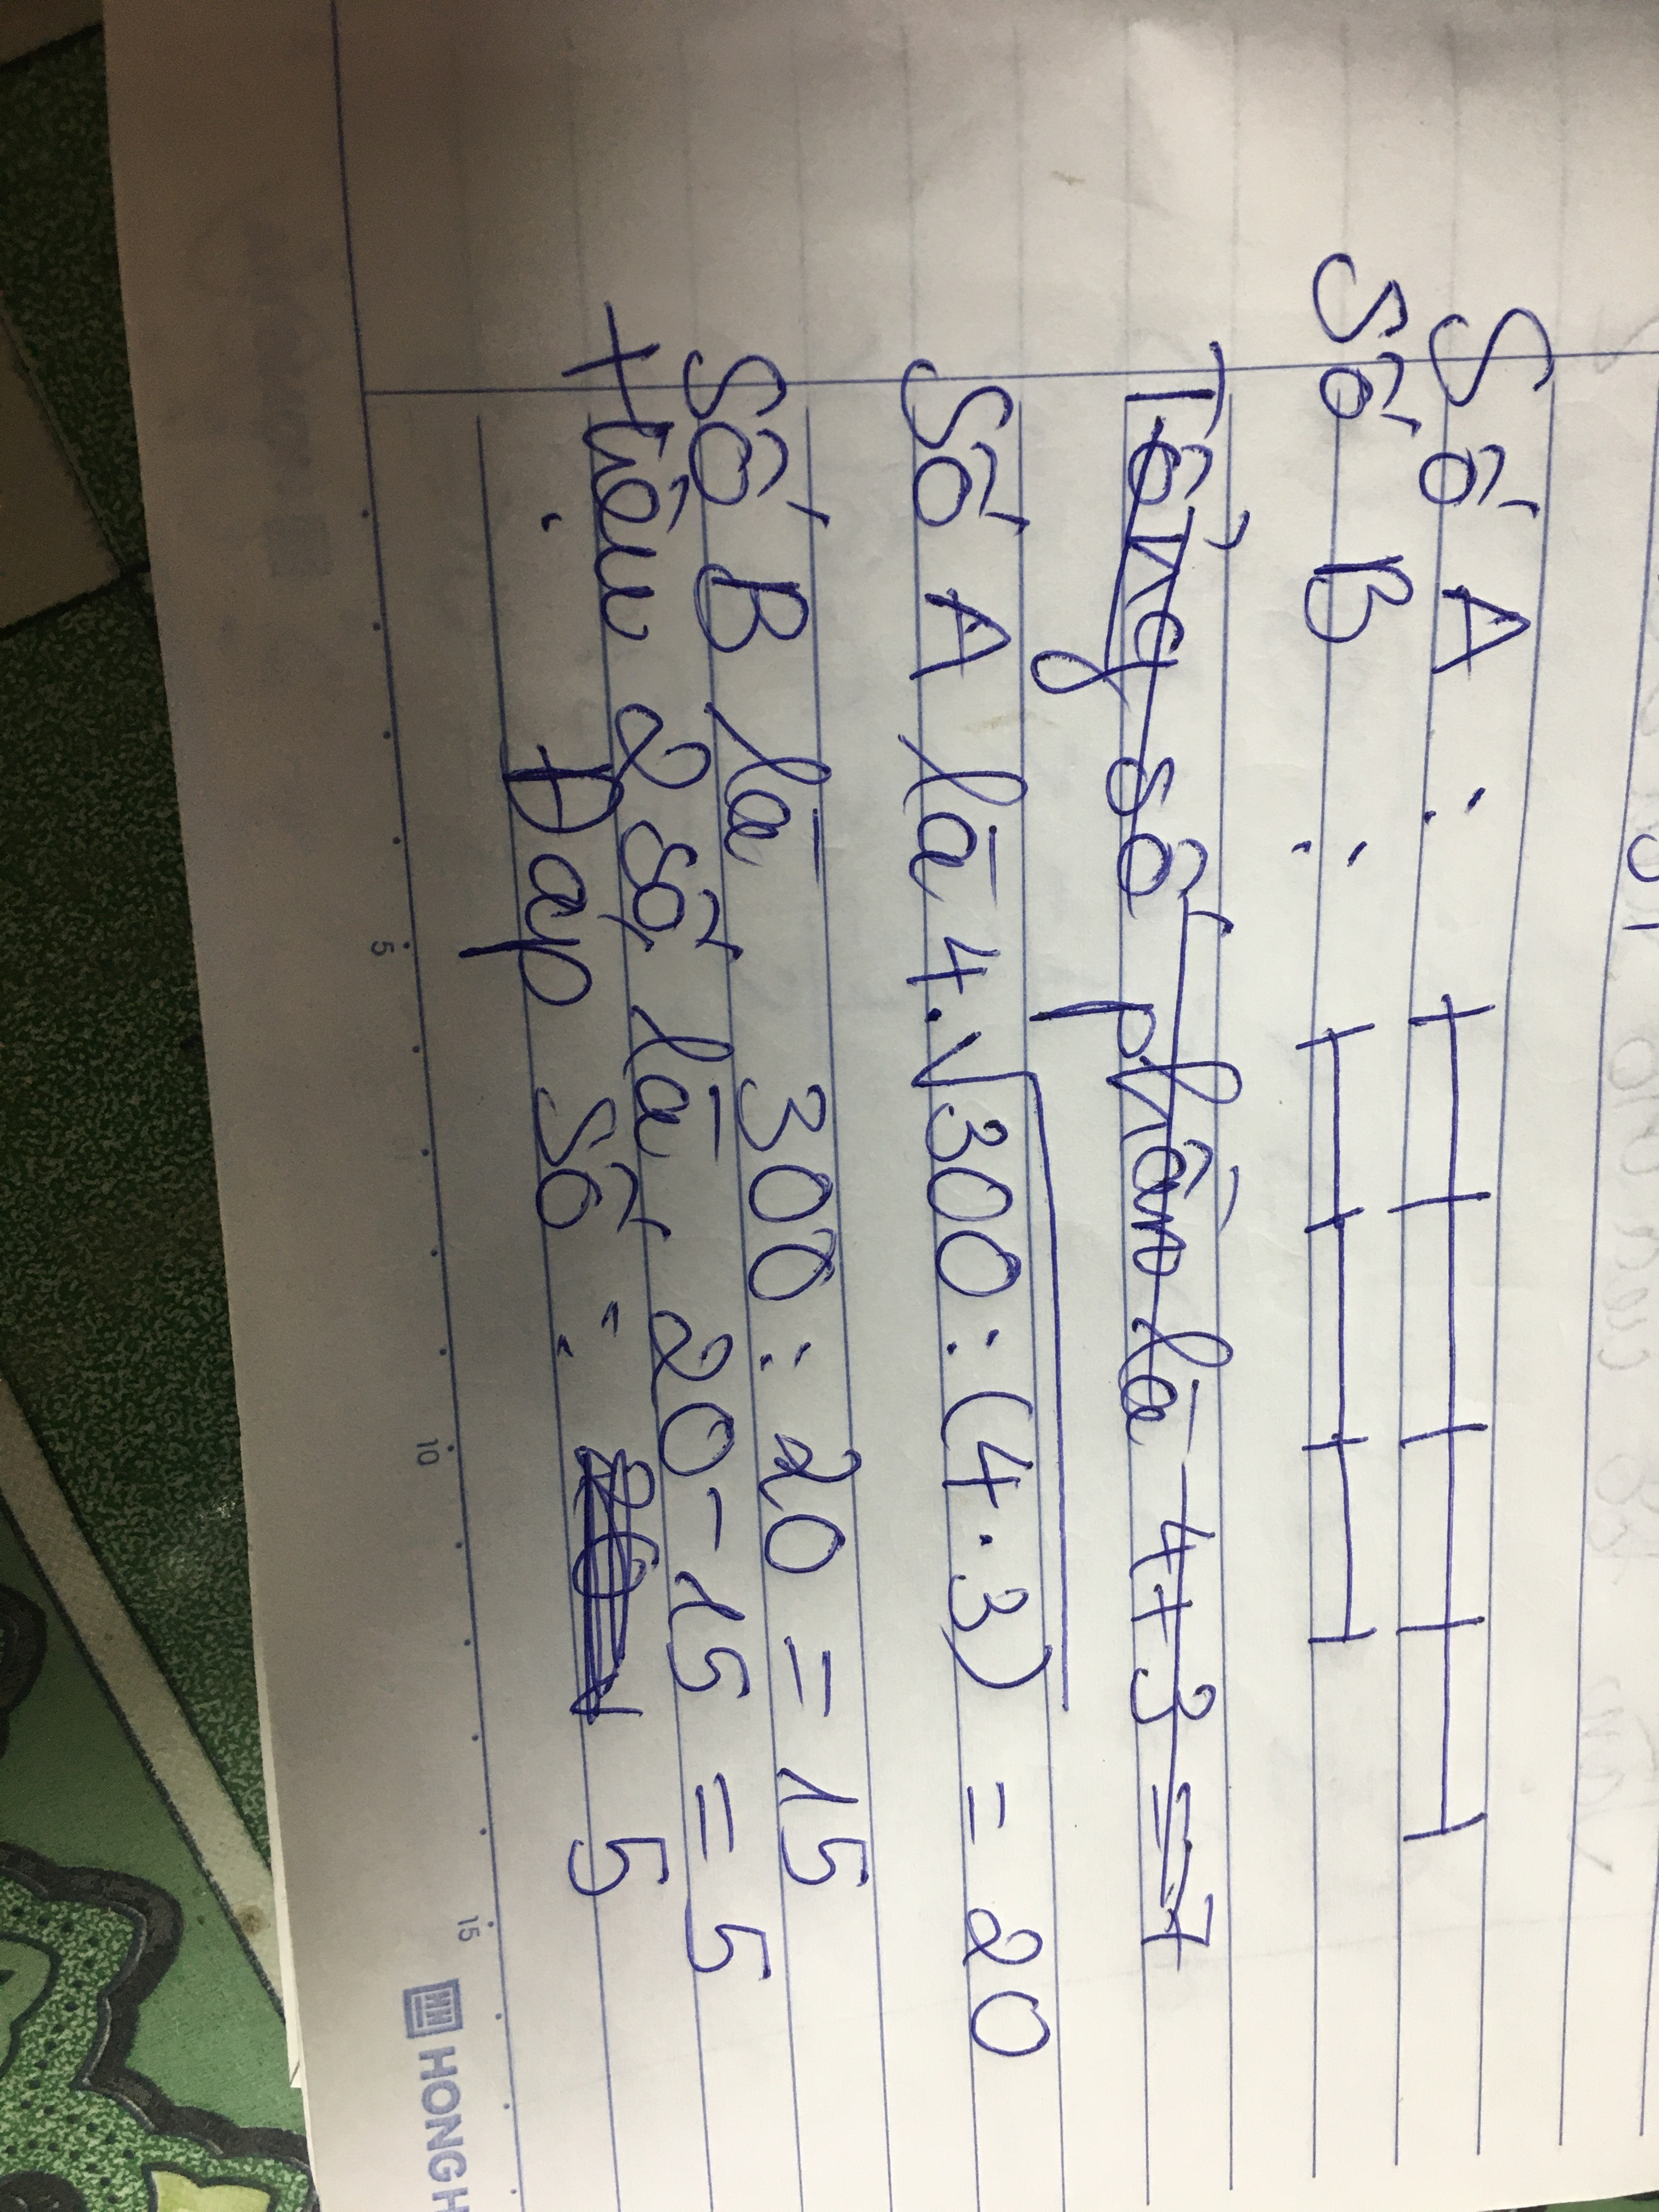 Số A :
Số B :
Tổng số phần là 4+3=7
Số A là 4.√300:(4.3) = 20
Số B là 300:20=15
Hiệu 2 số là 20-15=5
Đáp Số : 5
5 10 15
HONG H